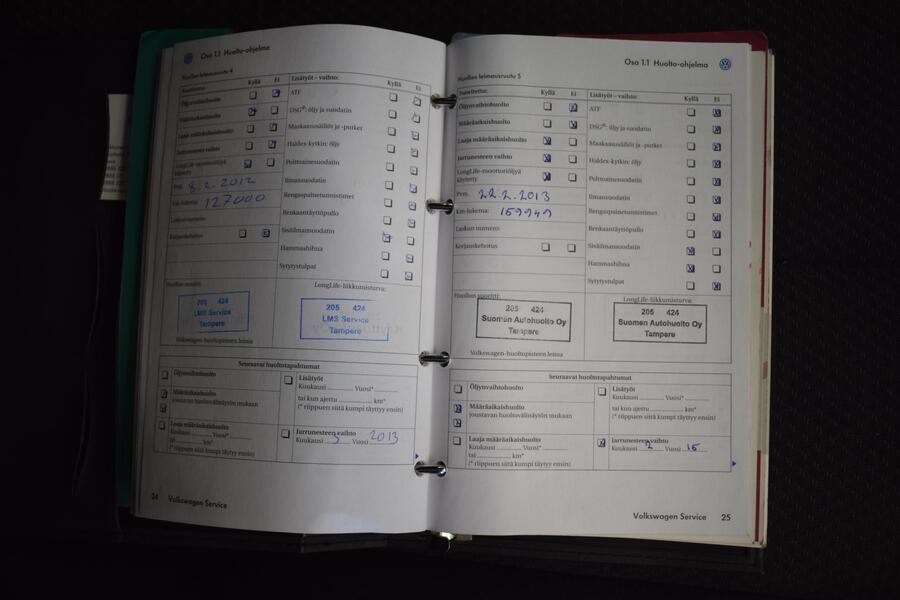 Osa 1.1 Huolto-ohjelma
Huollon leimausruutu 4
Suoritettu: Kyllä Ei
Öljynvaihtohuolto
Määräaikaishuolto
Laaja määräaikaishuolto
Jarrunesteen vaihto
LongLife-moottoriöljyä
käytetty
Pvm. 8.2.2012
Km-lukema: 127000
Laskun numero:
Korjauskehotus
Lisätyöt – vaihto: Kyllä Ei
ATF
DSG®: öljy ja suodatin
Maakaasusäiliöt ja -putket
Haldex-kytkin: öljy
Polttoainesuodatin
Ilmansuodatin
Rengaspainetunnistimet
Renkaantäyttöpullo
Sisäilmansuodatin
Hammashihna
Sytytystulpat
Huollon suoritti:
205 424
LMS Service
Tampere
Volkswagen-huoltopisteen leima
LongLife-liikkumisturva:
205 424
LMS Service
Tampere
Seuraavat huoltotapahtumat
Öljynvaihtohuolto
Määräaikaishuolto
joustavan huoltovälinäytön mukaan
Laaja määräaikaishuolto
Kuukausi Vuosi*
tai km*
(* riippuen siitä kumpi täyttyy ensin)
Lisätyöt
Kuukausi Vuosi*
tai kun ajettu km*
(* riippuen siitä kumpi täyttyy ensin)
Jarrunesteen vaihto
Kuukausi Vuosi 2013
24 Volkswagen Service
Osa 1.1 Huolto-ohjelma
Huollon leimausruutu 5
Suoritettu: Kyllä Ei
Öljynvaihtohuolto
Määräaikaishuolto
Laaja määräaikaishuolto
Jarrunesteen vaihto
LongLife-moottoriöljyä
käytetty
Pvm. 22.2.2013
Km-lukema: 159949
Laskun numero:
Korjauskehotus
Lisätyöt – vaihto: Kyllä Ei
ATF
DSG®: öljy ja suodatin
Maakaasusäiliöt ja -putket
Haldex-kytkin: öljy
Polttoainesuodatin
Ilmansuodatin
Rengaspainetunnistimet
Renkaantäyttöpullo
Sisäilmansuodatin
Hammashihna
Sytytystulpat
Huollon suoritti:
205 424
Suomen Autohuolto Oy
Tampere
Volkswagen-huoltopisteen leima
LongLife-liikkumisturva:
205 424
Suomen Autohuolto Oy
Tampere
Seuraavat huoltotapahtumat
Öljynvaihtohuolto
Määräaikaishuolto
joustavan huoltovälinäytön mukaan
Laaja määräaikaishuolto
Kuukausi Vuosi*
tai km*
(* riippuen siitä kumpi täyttyy ensin)
Lisätyöt
Kuukausi Vuosi*
tai kun ajettu km*
(* riippuen siitä kumpi täyttyy ensin)
Jarrunesteen vaihto
Kuukausi 2 Vuosi 15
Volkswagen Service 25